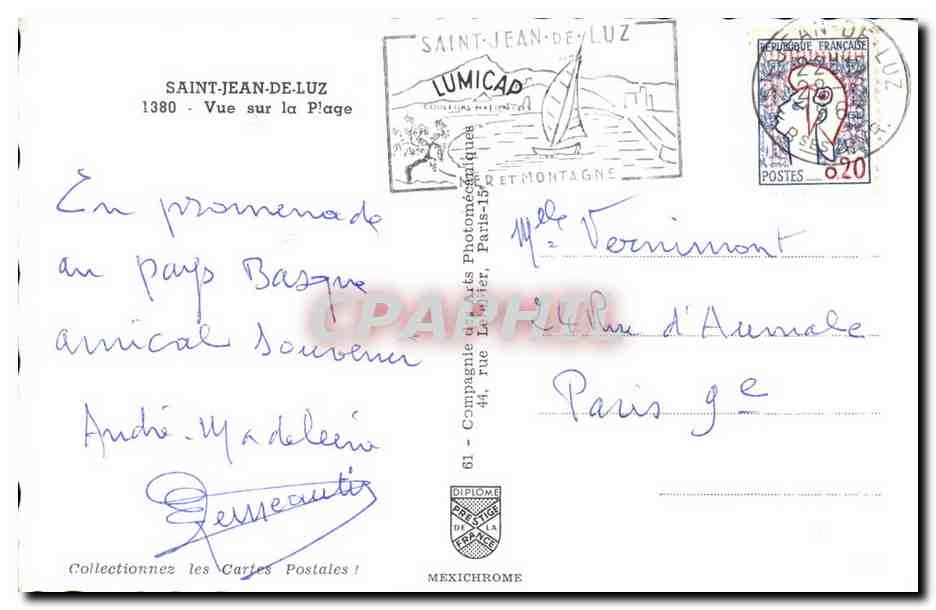 SAINT-JEAN-DE-LUZ
1380 - Vue sur la Plage
SAINT-JEAN-DE-LUZ
LUMICAP
MER ET MONTAGNE
RÉPUBLIQUE FRANÇAISE
POSTES
0,20
JEAN-DE-LUZ
En promenade
au pays Basque
amical souvenir
André-Madeleine
61 - Compagnie des Arts Photomécaniques
44, rue Letellier, Paris-15e
Mlle Vernimont
24 Rue d'Aumale
Paris 9e
CPAPHIL
DIPLOME
PRESTIGE
DE LA
FRANCE
MEXICHROME
Collectionnez les Cartes Postales !